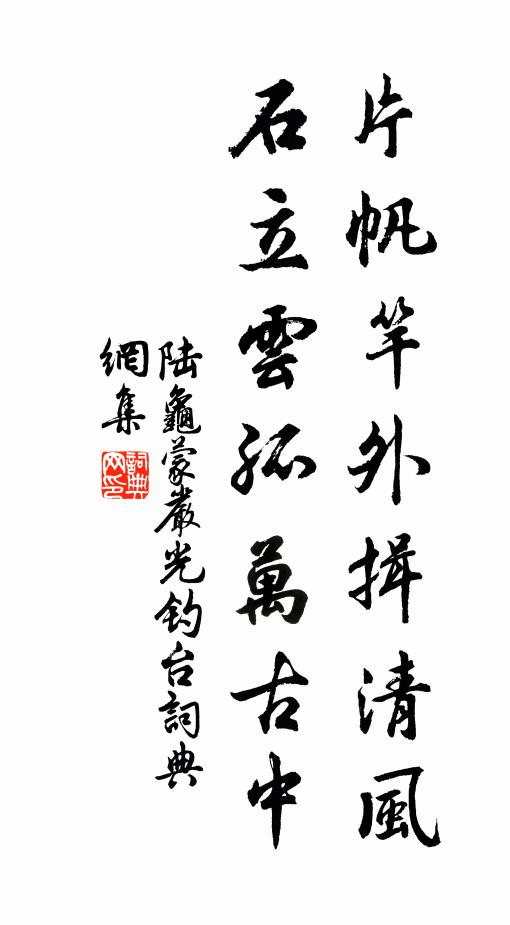 片帆竿外揖清風
石立雲孤萬古中
陸龜蒙嚴光釣台詞典
網集
詞典網印